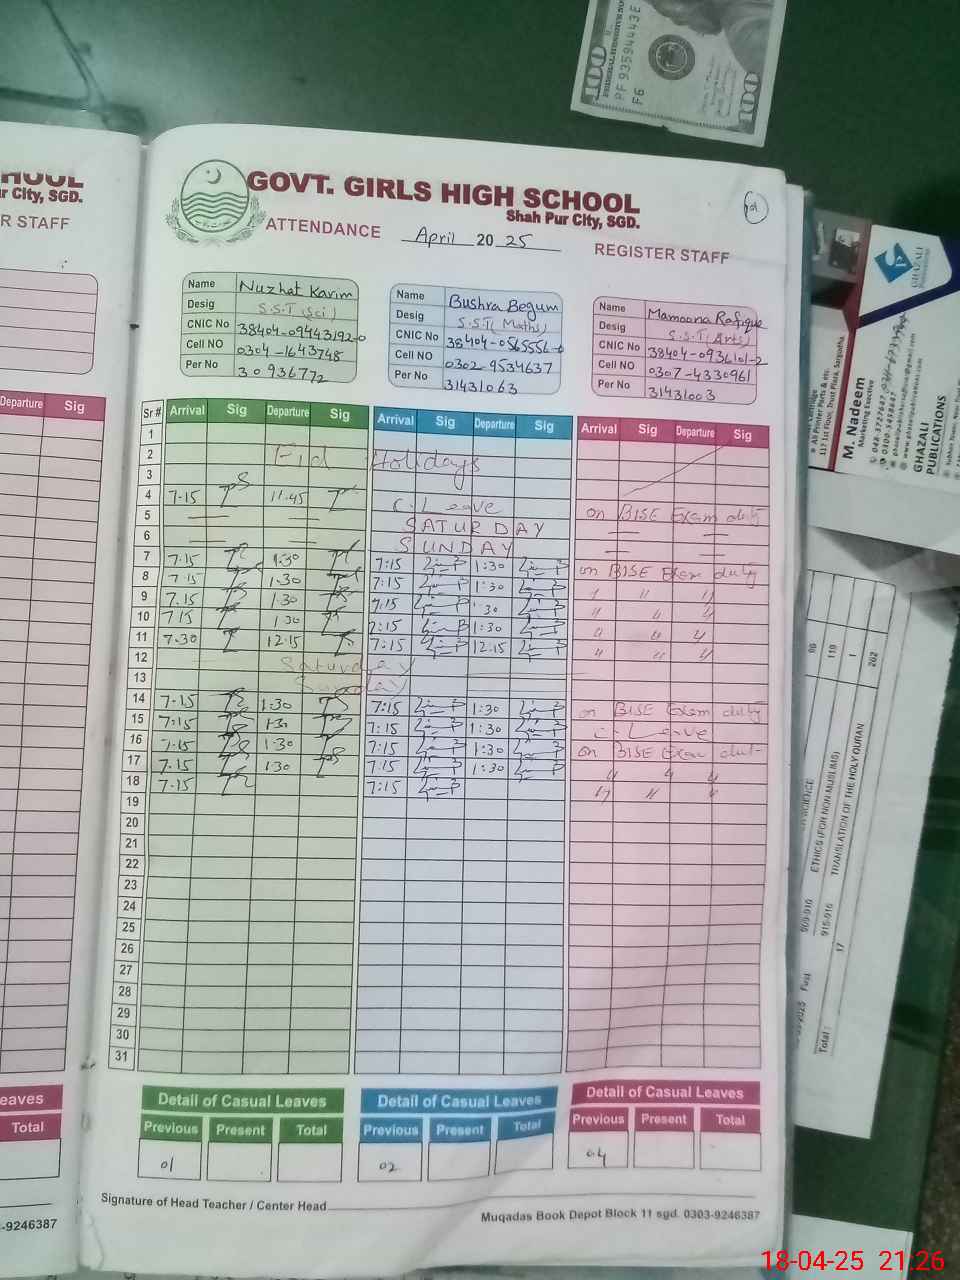 GOVT. GIRLS HIGH SCHOOL
Shah Pur City, SGD.
ATTENDANCE April 20 25 REGISTER STAFF
Name Nuzhat Karim
Desig S.S.T (Sci)
CNIC No 38404-0944392-0
Cell NO 0304-1643748
Per No 30936772
Name Bushra Begum
Desig S.S.T (Maths)
CNIC No 38404-0565556-0
Cell NO 0302-9534637
Per No 31431063
Name Mamoona Rafique
Desig S.S.T (Arts)
CNIC No 38404-0936101-2
Cell NO 0307-4330961
Per No 31431003
Sr # Arrival Sig Departure Sig Arrival Sig Departure Sig Arrival Sig Departure Sig
1
2 Eid Holidays
3
4 7.15 11.45 C. Leave on BISE Exam duty
5 SATURDAY
6 SUNDAY
7 7.15 1:30 7:15 1:30 on BISE Exam duty
8 7.15 1.30 7:15 1:30 " " "
9 7.15 1.30 7:15 :30 " " "
10 7.15 1.30 7:15 1:30 " " "
11 7.30 12.15 7:15 12.15 " " "
12 Saturday
13 Sunday
14 7.15 1:30 7:15 1:30 on BISE Exam duty
15 7:15 1:30 7:15 1:30 C. Leave
16 7.15 1:30 7:15 1:30 on BISE Exam dut
17 7.15 1:30 7:15 1:30 " " "
18 7.15 7:15 " " "
19
20
21
22
23
24
25
26
27
28
29
30
31
Detail of Casual Leaves Detail of Casual Leaves Detail of Casual Leaves
Previous Present Total Previous Present Total Previous Present Total
01 02 04
Signature of Head Teacher / Center Head
Muqadas Book Depot Block 11 sgd. 0303-9246387
HOOL
r City, SGD.
R STAFF
Departure Sig
eaves
Total
-9246387
100
PF 93594443E
F6
100
M. Nadeem
Marketing Executive
GHAZALI
PUBLICATIONS
117 1st Floor, Trust Plaza, Sargodha
ETHICS (FOR NON MUSLIMS)
TRANSLATION OF THE HOLY QURAN
909-910
915-916
17
Total :
98
119
1
262
18-04-25 21:26